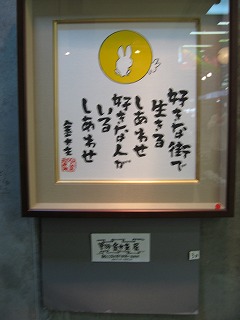 好きな街で
生きる
しあわせ
好きな人が
いる
しあわせ